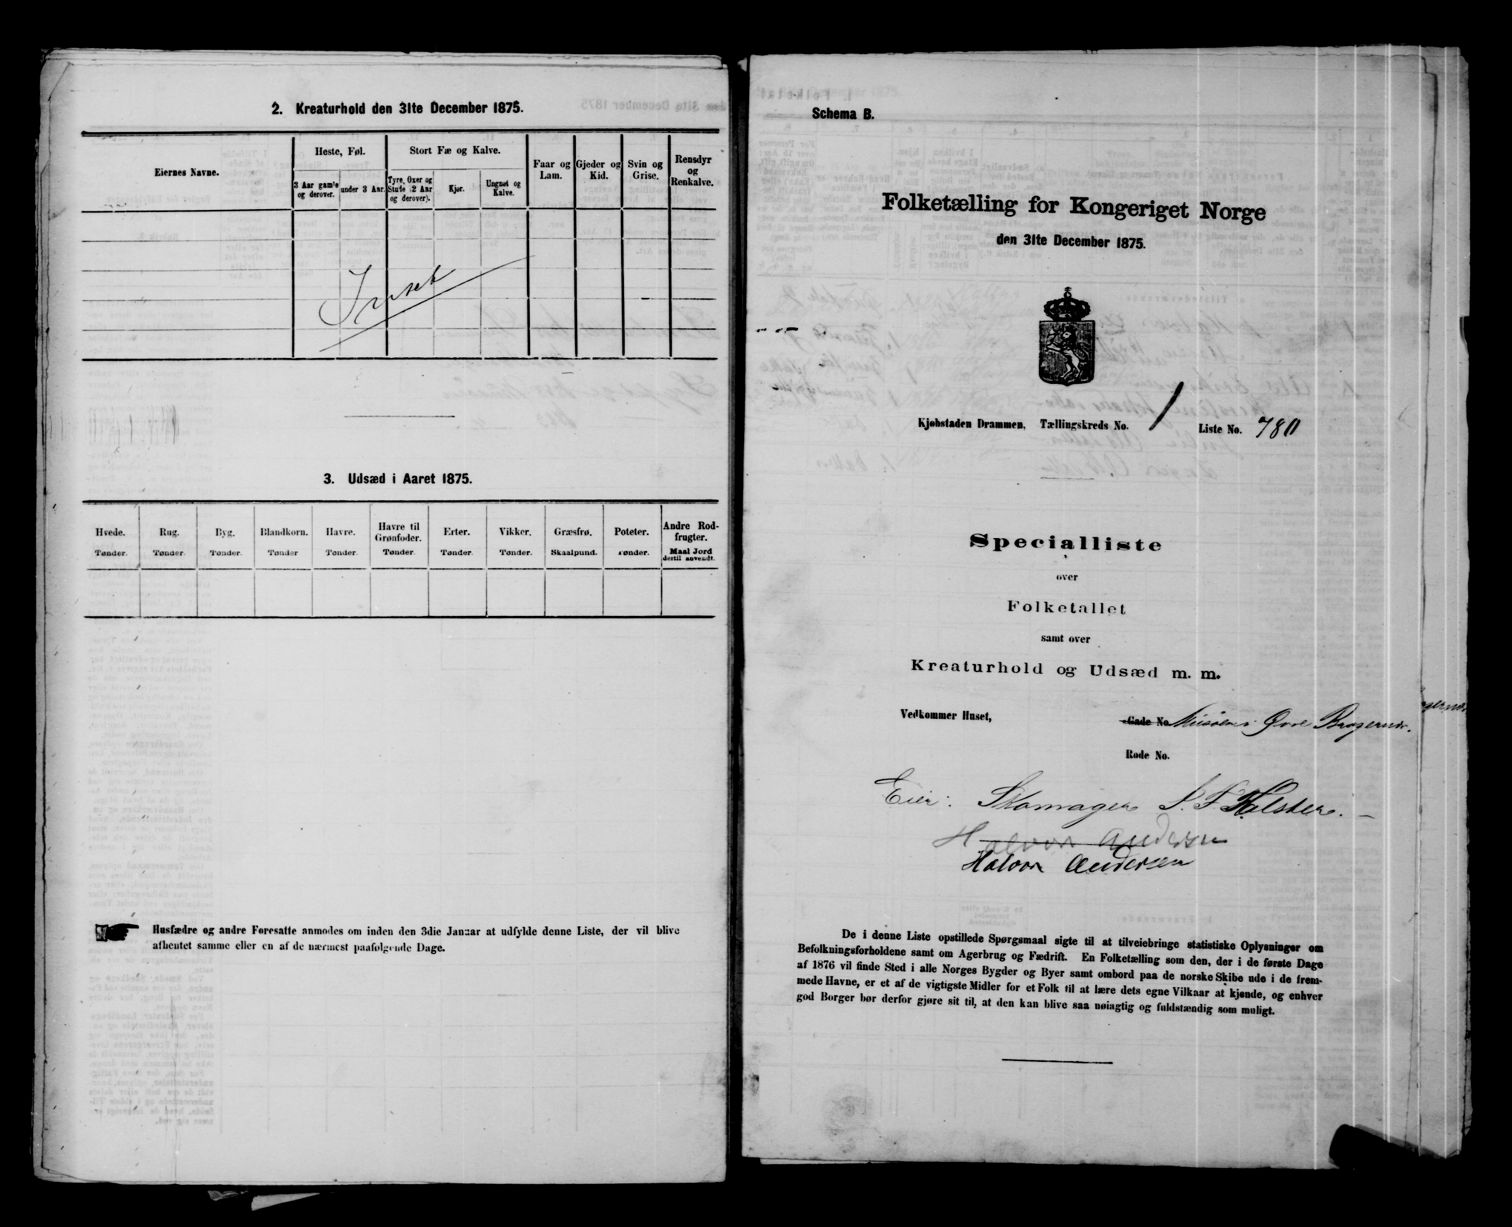 2. Kreaturhold den 31te December 1875.
Eiernes Navne.
Heste, Føl.
3 Aar gamle og derover.
under 3 Aar.
Stort Fæ og Kalve.
Tyre, Oxer og Stude (2 Aar og derover).
Kjør.
Ungnøt og Kalve.
Faar og Lam.
Gjeder og Kid.
Svin og Grise.
Rensdyr og Renkalve.
3. Udsæd i Aaret 1875.
Hvede. Tønder.
Rug. Tønder.
Byg. Tønder.
Blandkorn. Tønder
Havre. Tønder.
Havre til Grønfoder. Tønder.
Erter. Tønder.
Vikker. Tønder.
Græsfrø. Skaalpund.
Poteter. Tønder.
Andre Rodfrugter. Maal Jord dertil anvendt.
Husfædre og andre Foresatte anmodes om inden den 3die Januar at udfylde denne Liste, der vil blive
afhentet samme eller en af de nærmest paafølgende Dage.
Schema B.
Folketælling for Kongeriget Norge
den 31te December 1875.
Kjøbstaden Drammen, Tællingskreds No. 1 Liste No. 780
Specialliste
over
Folketallet
samt over
Kreaturhold og Udsæd m. m.
Vedkommer Huset, Gade No. Øvre Bragernæs.
Rode No.
Eier: Skomager J. F. Holster.
Halvor Andersen
Halvor Andersen
De i denne Liste opstillede Spørgsmaal sigte til at tilveiebringe statistiske Oplysninger om
Befolkningsforholdene samt om Agerbrug og Fædrift. En Folketælling som den, der i de første Dage
af 1876 vil finde Sted i alle Norges Bygder og Byer samt ombord paa de norske Skibe ude i de frem-
mede Havne, er et af de vigtigste Midler for et Folk til at lære dets egne Vilkaar at kjende, og enhver
god Borger bør derfor gjøre sit til, at den kan blive saa nøiagtig og fuldstændig som muligt.